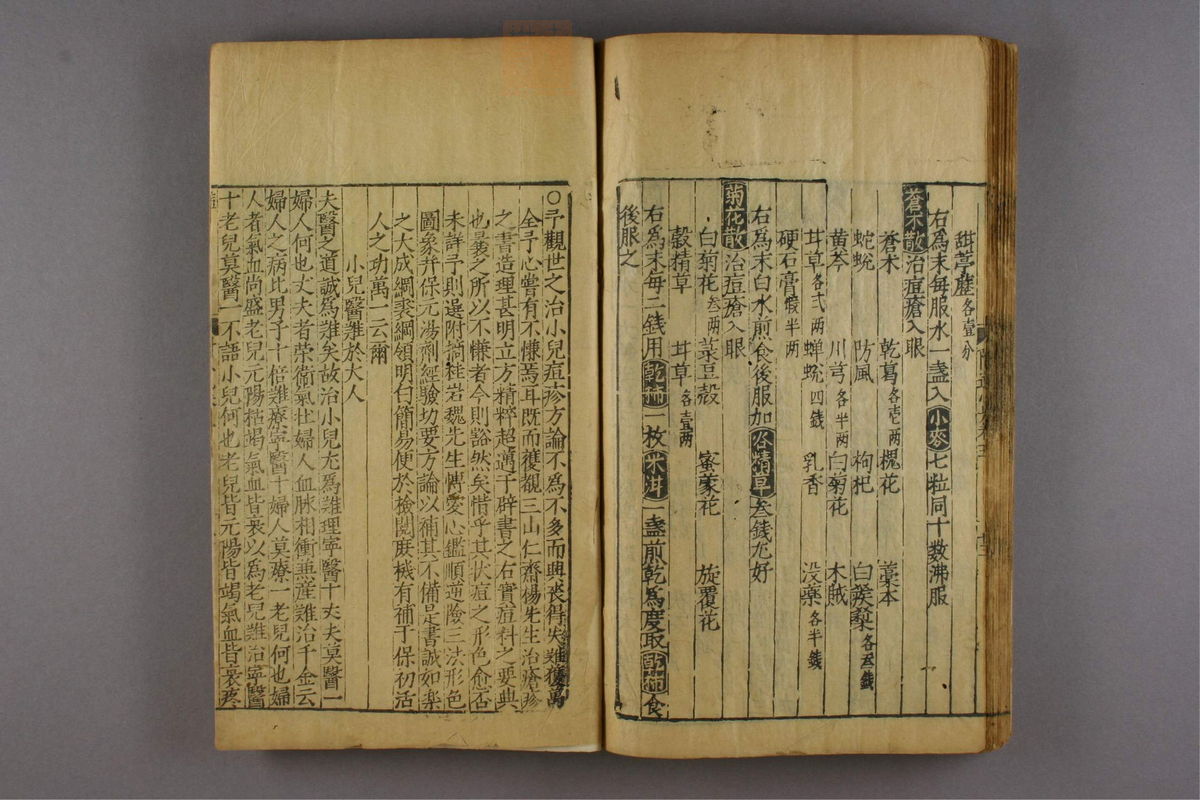 甜葶藶各壹分
右爲末每服水一盞入小麥七粒同十數沸服
蒼朮散治痘瘡入眼
蒼木 乾葛各壱两 槐花 藁本
蛇蛻 防風 枸杞 白蒺藜各叁錢
黄芩 川芎各半两 白菊花 木賊
耳草各弍两 蟬蛻四錢 乳香 没藥各半錢
硬石膏煅半两
右爲末白水煎食後服加谷精草叁錢尤好
菊花散治痘瘡入眼
白菊花叁两 菉豆殼 蜜蒙花 旋覆花
穀精草 耳草各壹两
右爲末每二錢用乾柿一枚米泔一盞煎乾爲度取乾柿食
後服之
○予觀世之治小兒痘疹方論不爲不多而興喪得失難獲萬
全予心嘗有不慊焉耳既而獲覩三山仁齋楊先生治瘡疹
之書造理甚明立方精粹超邁于辟書之右實痘科之要典
也曩之所以不慊者今則豁然矣惜乎其状痘之形色愈否
未詳予則選附桂岩魏先生慱愛心鑑順逆險三法形色
圖象并保元湯劑經驗切要方論以補其不備是書誠如樂
之大成綱裘綱領明白簡易便於檢閱庶機有補于保初活
人之功萬一云爾
小兒醫難於大人
夫醫之道誠爲難矣故治小兒尤爲難理寧醫十丈夫莫醫一
婦人何也丈夫者荣衛氣壮婦人血脉相衝無産難治千金云
婦人之病比男子十倍難療寧醫十婦人莫療一老兒何也婦
人者氣血尚盛老兒元陽枯竭氣血皆衰以爲老兒難治寧醫
十老兒莫醫一不語小兒何也老兒皆元陽皆竭氣血皆衰疼